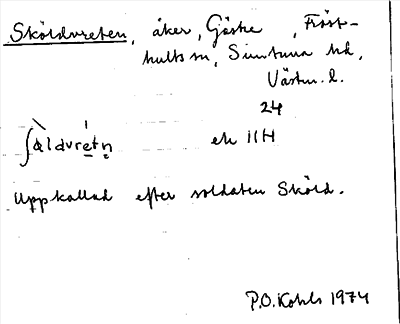 Sköldvreten, åker, Göske, Fröst-
hults sn, Simtuna hd,
Västm. l.
24
ek 11H
Uppkallad efter soldaten Sköld.
P.O. Kohls 1974